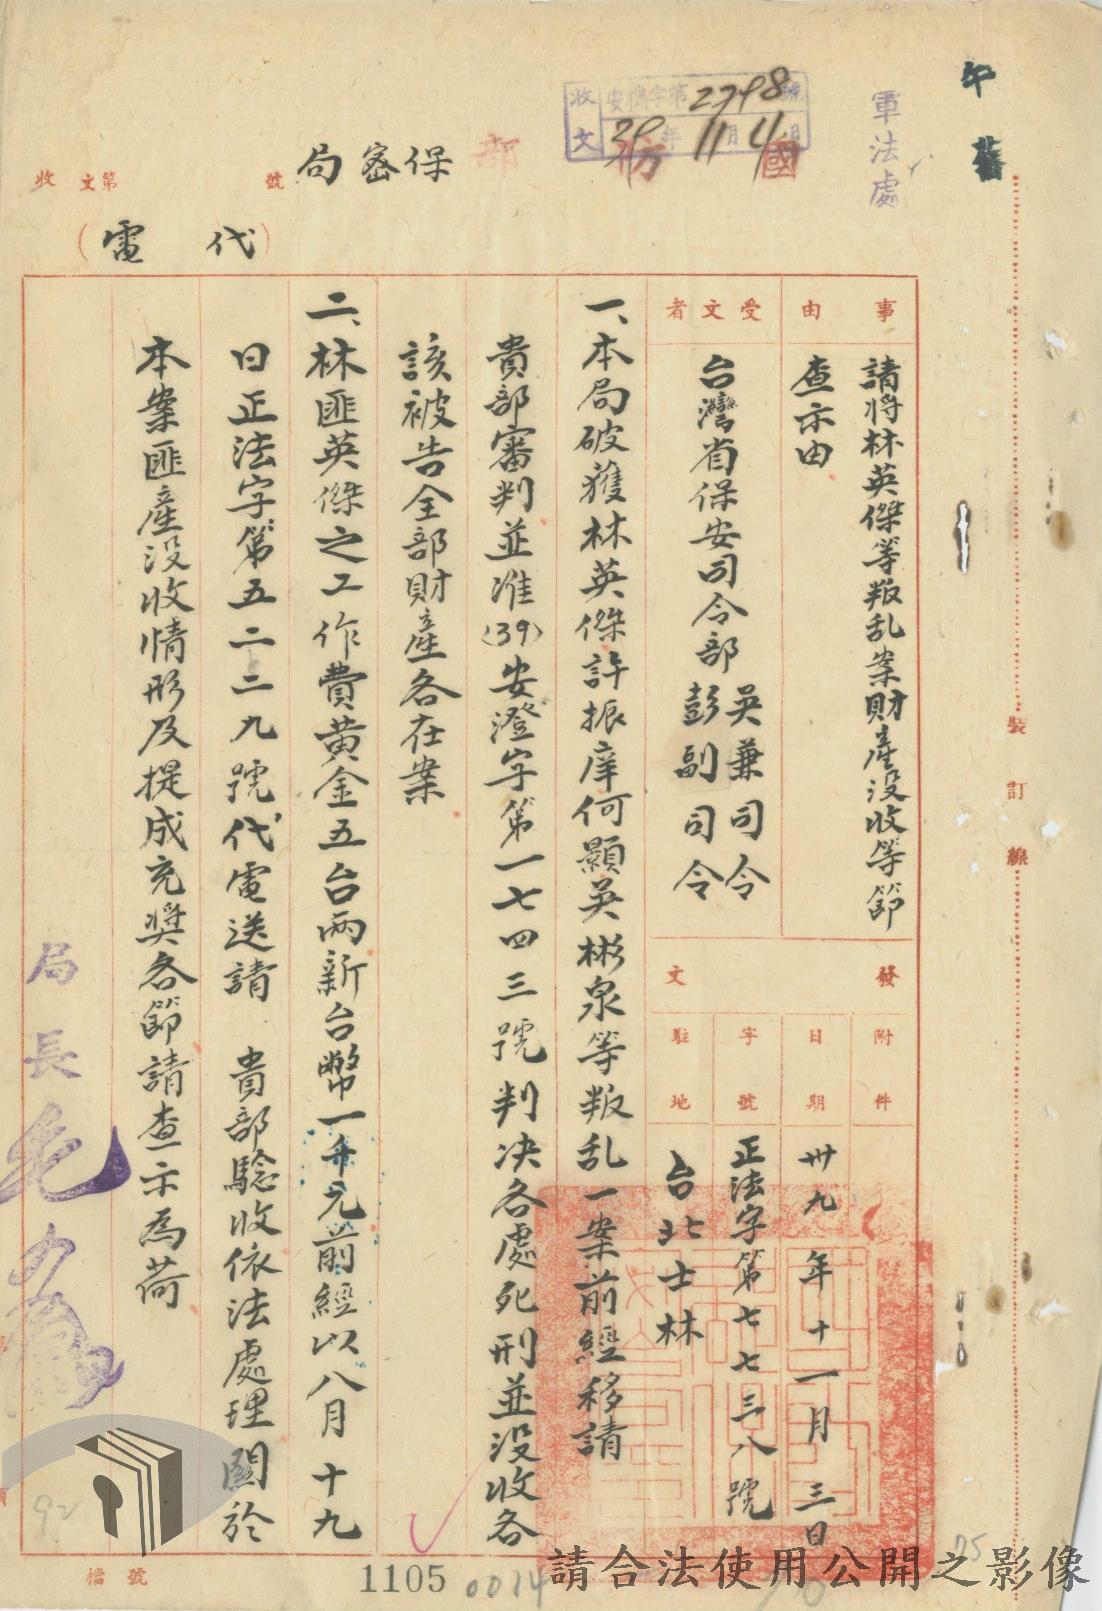 午
舊
軍法處
國防部
保密局
(代電)
收文 安機字第2798號
39年11月4日
收文第 號
事由
請將林英傑等叛乱案財產没收等節
查示由
受文者
台灣省保安司令部吳兼司令
彭副司令
發文
附件
日期
卅九年十一月三日
字號
正法字第七七三八號
駐地
台北士林
一、本局破獲林英傑許振庠何顯英彬泉等叛乱一案前經移請
貴部審判並准(39)安澄字第一七四三號判决各處死刑並没收各
該被告全部財產各在案
二、林匪英傑之工作費黃金五台兩新台幣一千元前經以八月十九
日正法字第五二二九號代電送請 貴部驗收依法處理關於
本案匪產没收情形及提成充奬各節請查示為荷
局長毛人鳳
裝訂線
檔號
1105
0014
92
75
請合法使用公開之影像